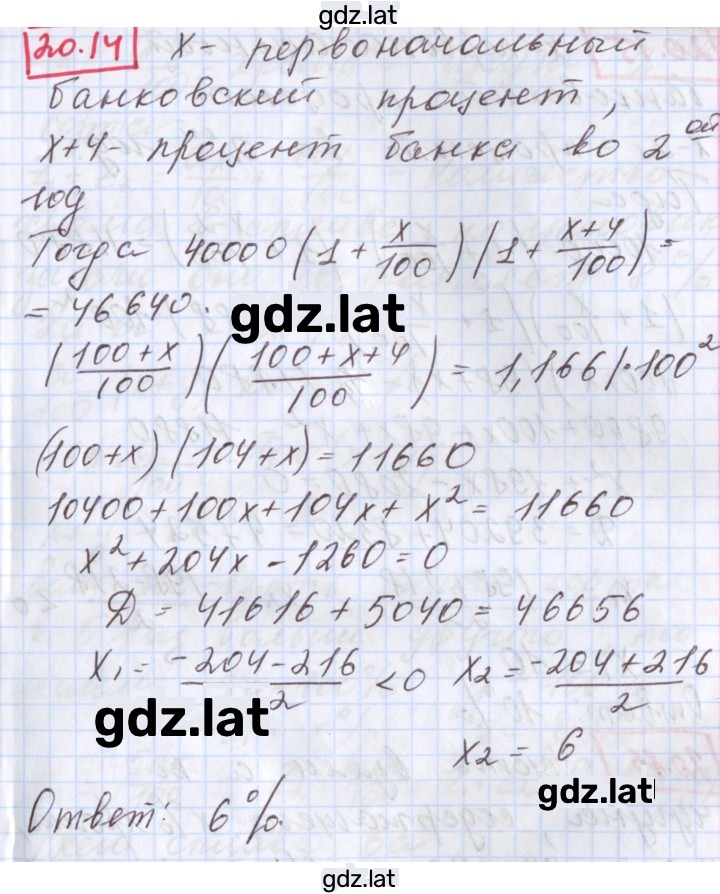 gdz.lat
20.14 x - первоначальный
банковский процент,
x+4 - процент банка во 2ой
год
Тогда 40000(1 + x/100)(1 + (x+4)/100) =
= 46640.
gdz.lat
((100+x)/100)((100+x+4)/100) = 1,166 |·100²
(100+x)(104+x) = 11660
10400+100x+104x+x² = 11660
x²+204x-1260=0
Д = 41616+5040=46656
x₁ = (-204-216)/2 <0 x₂ = (-204+216)/2
gdz.lat
x₂ = 6
gdz.lat
Ответ: 6%.
gdz.lat